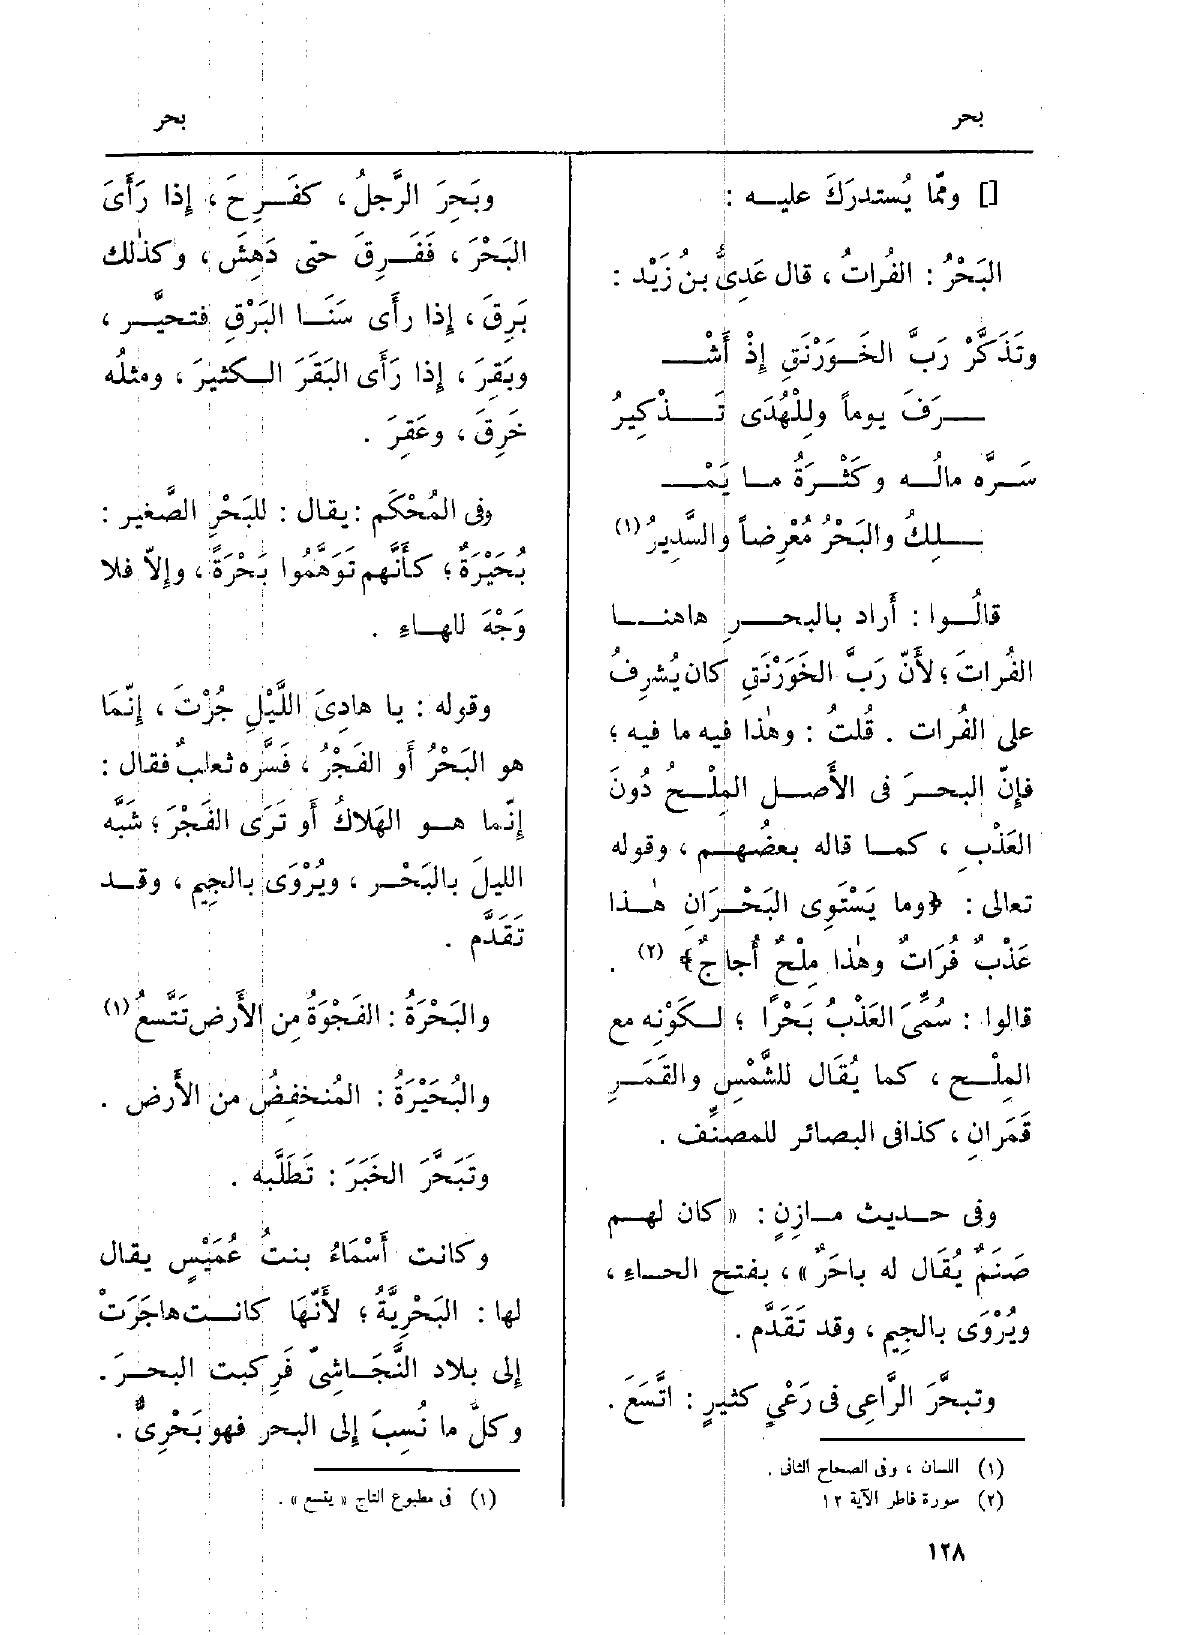 بحر
بحر
[] وممّا يُستدرَكَ عليـه :
البَحْرُ : الفُراتُ ، قال عَدِيُّ بنُ زَيْد :
وتَذَكَّرْ رَبَّ الخَـوَرْنَقِ إِذ أَشْــ
ــرَفَ يوماً وللْهُدَى تَــذْكِيرُ
سَـرَّه مالُـه وكَثْـرَةُ مـا يَمْــ
ــلِكُ والبَحْرُ مُعْرِضاً والسَّدِيرُ (١)
قالُـوا : أَراد بالبحـرِ هاهنــا
الفُراتَ ؛ لأَنّ رَبَّ الخَوَرْنَقِ كان يُشرِفُ
على الفُرات . قُلتُ : وهٰذا فيه ما فيه ؛
فإِنّ البحـرَ فى الأَصـل المِلْـحُ دُونَ
العَذْبِ ، كمـا قاله بعضُهـم ، وقوله
تعالى : ﴿وما يَسْتَوِى البَحْـرَانِ هٰـذا
عَذْبٌ فُرَاتٌ وهٰذا مِلْحٌ أُجاجٌ﴾ (٢) .
قالوا : سُمِّىَ العَذْبُ بَحْرًا ؛ لـكَوْنِه مع
المِلْـح ، كما يُقَال للشَّمْسِ والقَمَـرِ
قَمَرانِ ، كذا فى البصائر للمصنِّف .
وفى حـديث مـازِنٍ : « كان لهـم
صَنَمٌ يُقَال له باحَرٌ » ، بفتح الحـاء ،
ويُرْوَى بالجِيم ، وقد تَقَدَّم .
وتبحَّرَ الرَّاعِى فى رَعْىٍ كثيرٍ : اتَّسَعَ .
(١) اللسان ، وفى الصحاح الثانى .
(٢) سورة فاطر الآية ١٢
١٢٨
وبَحِرَ الرَّجلُ ، كفَـرِحَ ، إِذا رَأَى
البَحْرَ ، فَفَـرِقَ حتى دَهِشَ ، وكذٰلك
بَرِقَ ، إِذا رأَى سَنَـا البَرْقِ فتحيَّـر ،
وبَقِرَ ، إِذا رَأَى البَقَرَ الـكثيرَ ، ومثلُه
خَرِقَ ، وعَقِرَ .
وفى المُحْكَم : يقال : للبَحْرِ الصَّغير :
بُحَيْرَةٌ ؛ كأَنَّهم تَوَهَّمُوا بَحْرَةً ، وإِلاّ فلا
وَجْهَ للهـاءِ .
وقوله : يا هادِىَ اللَّيْلِ جُزْتَ ، إِنَّمَا
هو البَحْرُ أَو الفَجْرُ ، فَسَّره ثعلبٌ فقال :
إِنَّما هـو الهَلاكُ أَو تَرَى الفَجْرَ ؛ شَبَّه
الليلَ بالبَحْـر ، ويُرْوَى بالجِيمِ ، وقـد
تَقَدَّم .
والبَحْرَةُ : الفَجْوَةُ مِن الأَرض تَتَّسعُ (١)
والبُحَيْرَةُ : المُنخفِضُ من الأَرض .
وتَبَحَّرَ الخَبَرَ : تَطَلَّبه .
وكانت أَسْمَاءُ بنتُ عُمَيْسٍ يقال
لها : البَحْرِيَّةُ ؛ لأَنَّهَا كانـت هاجَرَتْ
إِلى بلاد النَّجَـاشِىّ فَرِكبت البحـرَ .
وكلُّ ما نُسِبَ إِلى البحر فهو بَحْرِىٌّ .
(١) فى مطبوع التاج « يقسع » .